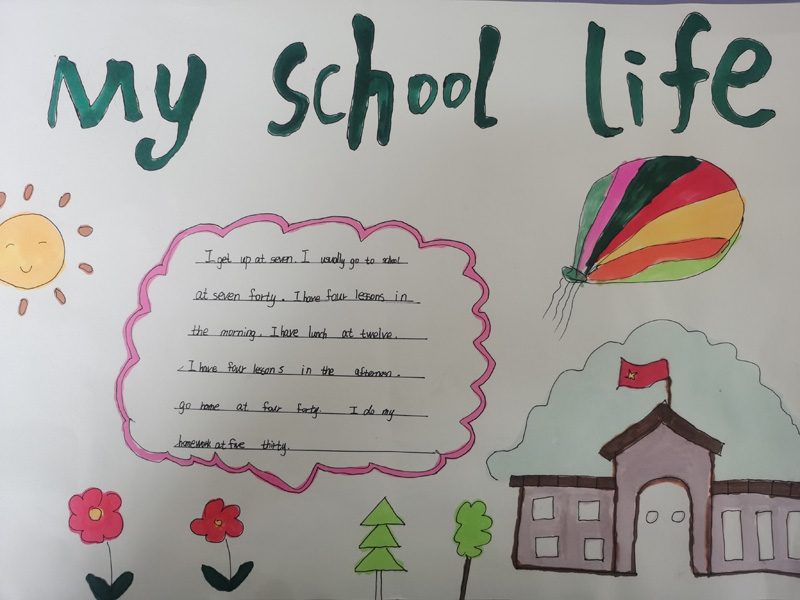 My school life
I get up at seven. I usually go to school
at seven forty. I have four lessons in
the morning. I have lunch at twelve.
I have four lessons in the afternoon.
go home at four forty. I do my
homework at five thirty.